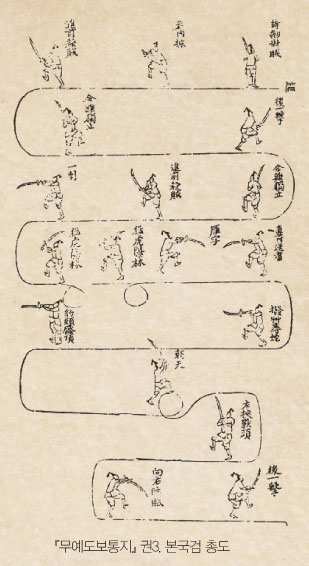 持劍對賊
右內掠
進前擊賊
金鷄獨立
後一擊
金鷄獨立
進前擊賊
一刺
猛虎隱林
猛虎隱林
雁字
直符送書
撥艸尋蛇
豹頭壓頂
朝天
左挾獸頭
向右防賊
後一擊
『무예도보통지』 권3. 본국검 총도